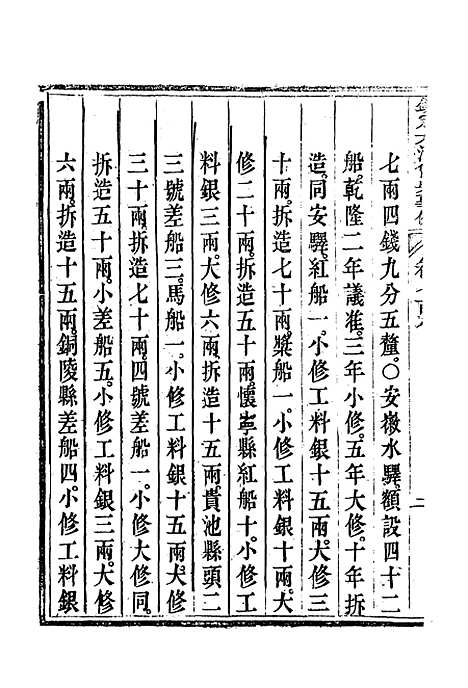 欽定大清會典事例 卷
七兩四錢九分五釐。○安徽水驛額設四十二
船。乾隆二年議准。三年小修。五年大修。十年拆
造。同安驛。紅船一。小修工料銀十五兩。大修三
十兩。拆造七十兩。槳船一。小修工料銀十兩。大
修二十兩。拆造五十兩。懷寧縣紅船十。小修工
料銀三兩。大修六兩。拆造十五兩。貴池縣頭二
三號差船三。馬船一。小修工料銀十五兩。大修
三十兩。拆造七十兩。四號差船一。小修大修同。
拆造五十兩。小差船五。小修工料銀三兩。大修
六兩。拆造十五兩。銅陵縣差船四。小修工料銀